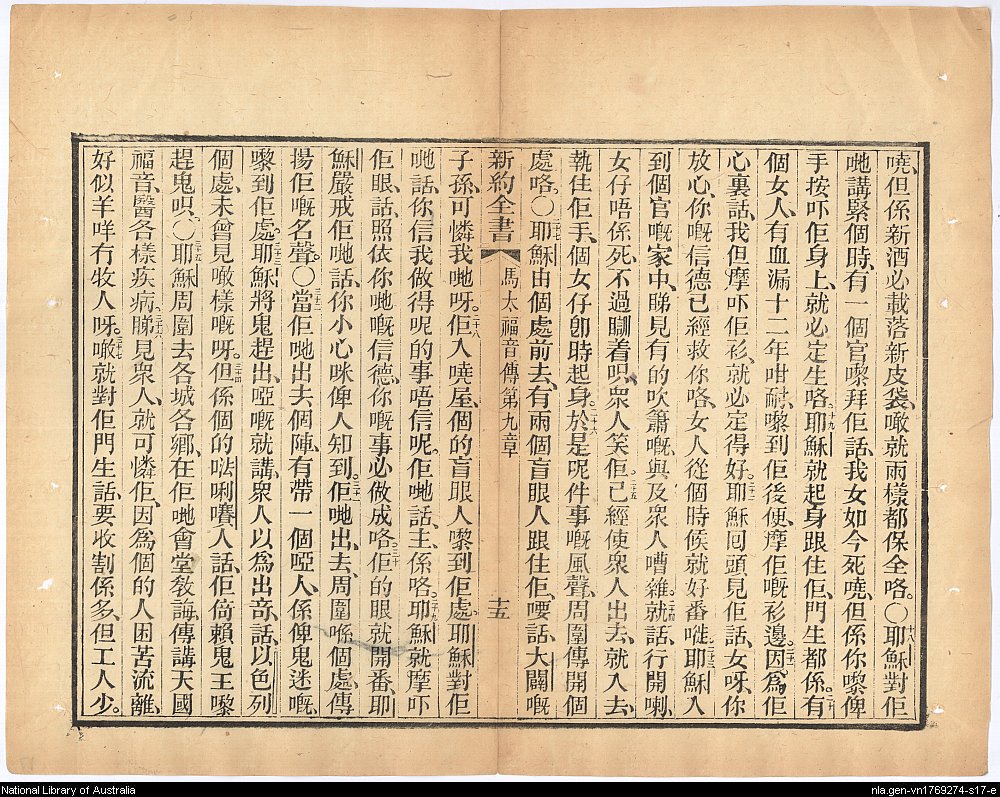 嘵、但係新酒必載落新皮袋、噉就兩樣都保全咯。〇十八耶穌對佢
哋講緊個時、有一個官嚟拜佢話、我女如今死嘵、但係你嚟俾
手按吓佢身上、就必定生咯。十九耶穌就起身跟住佢、門生都係。二十有
個女人、有血漏十二年咁耐、嚟到佢後便、摩佢嘅衫邊。二十一因為佢
心裏話、我但摩吓佢衫、就必定得好。二十二耶穌囘頭見佢話、女呀、你
放心、你嘅信德已經救你咯、女人從個時候就好番嘥。二十三耶穌入
到個官嘅家中、睇見有的吹簫嘅、與及衆人嘈雜、就話、二十四行開喇、
女仔唔係死、不過瞓着呮、衆人笑佢。二十五已經使衆人出去、就入去、
執住佢手、個女仔卽時起身。二十六於是呢件事嘅風聲、周圍傳開個
處咯。〇二十七耶穌由個處前去、有兩個盲眼人跟住佢、嗌話、大闢嘅
新約全書 馬太福音傳第九章 十五
子孫、可憐我哋呀。二十八佢入嘵屋、個的盲眼人嚟到佢處、耶穌對佢
哋話、你信我做得呢的事唔信呢。佢哋話、主、係咯。二十九耶穌就摩吓
佢眼、話、照依你哋嘅信德、你嘅事必做成咯。三十佢的眼就開番、耶
穌嚴戒佢哋話、你小心咪俾人知到。三十一佢哋出去、周圍喺個處、傳
揚佢嘅名聲。〇三十二當佢哋出去個陣、有帶一個啞人、係俾鬼迷嘅、
嚟到佢處。三十三耶穌將鬼趕出、啞嘅就講、衆人以為出奇、話、以色列
個處、未曾見噉樣嘅呀。三十四但係個的𠵽唎㘔人話、佢倚賴鬼王嚟
趕鬼呮。〇三十五耶穌周圍去各城各鄉、在佢哋會堂敎誨、傳講天國
福音、醫各樣疾病。三十六睇見衆人、就可憐佢、因為個的人困苦流離、
好似羊咩冇牧人呀。三十七噉就對佢門生話、要收割係多、但工人少。
National Library of Australia
nla.gen-vn1769274-s17-e